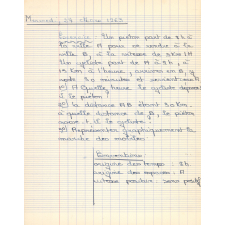 Exercice Un piéton part de 8h à
la ville A pour se rendre à la
ville B à la vitesse de 5km/h
Un cycliste part de A à 9h, à
15km à l'heure, arrive en B, y
reste 30 minutes et revient vers A
1°) A quelle heure le cycliste dépasse
il le piéton
2°) la distance AB étant 30km,
à quelle distance de B, le piéton
le cycliste
3°) Représenter graphiquement la
marche des mobiles
Conventions
origine des temps : 8h
origine des espaces : A
vitesse positive sens positif